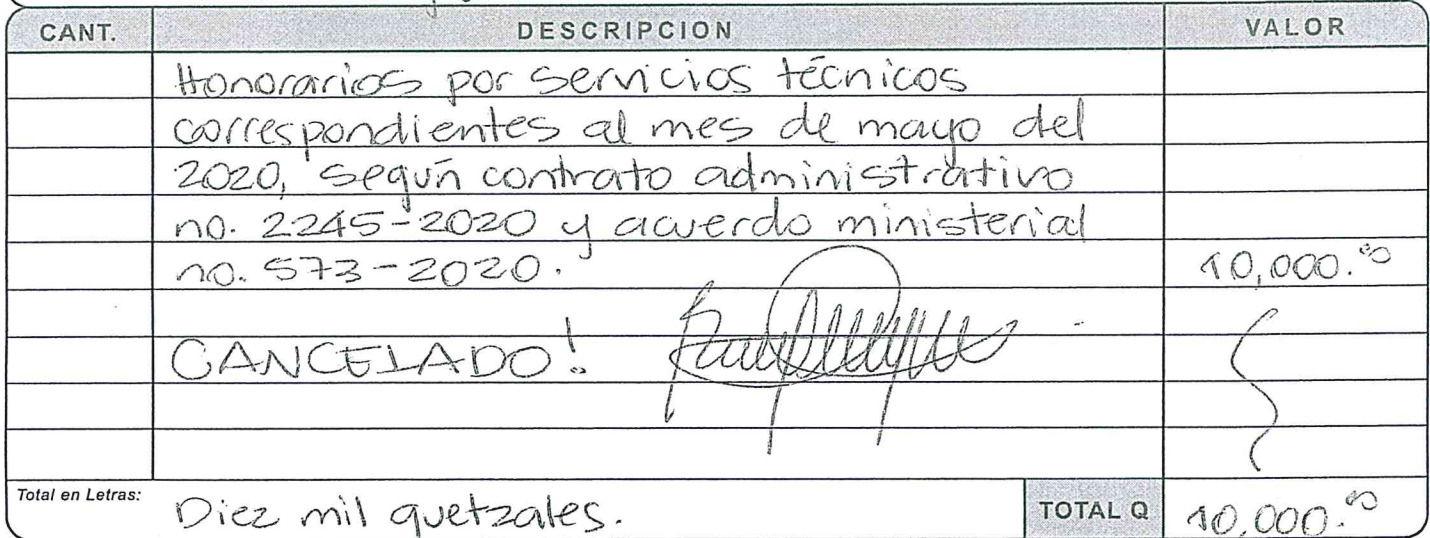 CANT. DESCRIPCION VALOR
Honorarios por servicios técnicos
correspondientes al mes de mayo del
2020, según contrato administrativo
no. 2245-2020 y acuerdo ministerial
no. 573-2020. 10,000.00
CANCELADO!
Total en Letras: Diez mil quetzales. TOTAL Q 10,000.00